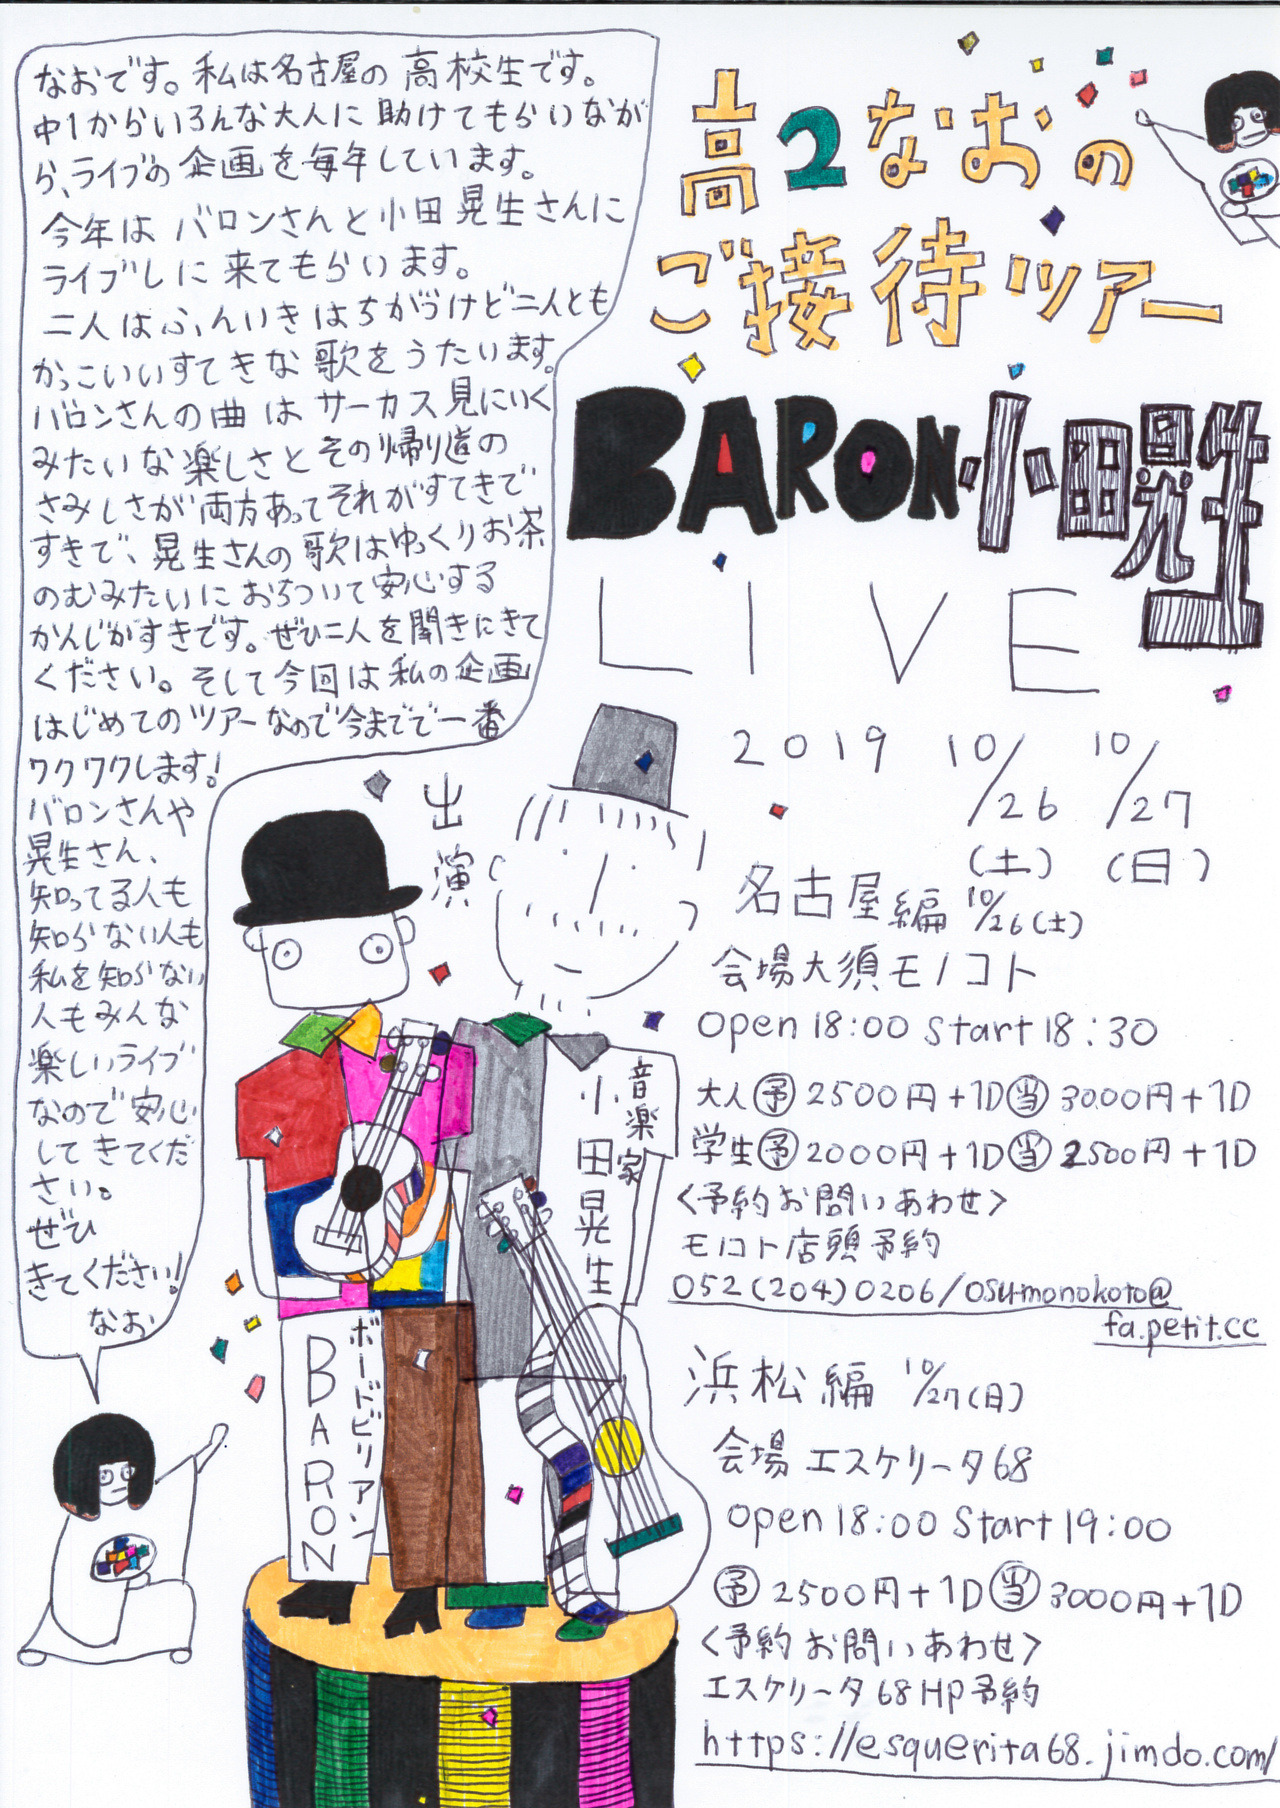 なおです。私は名古屋の高校生です。
中1からいろんな大人に助けてもらいなが
ら、ライブの企画を毎年しています。
今年はバロンさんと小田晃生さんに
ライブしに来てもらいます。
二人はふんいきはちがうけど二人とも
かっこいいすてきな歌をうたいます。
バロンさんの曲はサーカス見にいく
みたいな楽しさとその帰り道の
さみしさが両方あってそれがすてきで
すきで、晃生さんの歌はゆっくりお茶
のむみたいにおちついて安心する
かんじがすきです。ぜひ二人を聞きにきて
ください。そして今回は私の企画
はじめてのツアーなので今までで一番
ワクワクします!
バロンさんや
晃生さん、
知ってる人も
知らない人も
私を知らない
人もみんな
楽しいライブ
なので安心
してきてくだ
さい。
ぜひ
きてください!
なお
高2なおの
ご接待ツアー
BARON小田晃生
LIVE
2019 10/26 10/27
(土) (日)
出演
ボードビリアン
BARON
音楽家
小田晃生
名古屋編 10/26(土)
会場大須モノコト
open18:00 Start18:30
大人予2500円+1D当3000円+1D
学生予2000円+1D当2500円+1D
<予約お問いあわせ>
モノコト店頭予約
052(204)0206/osu-monokoto@
fa.petit.cc
浜松編 10/27(日)
会場 エスケリータ68
open18:00 Start19:00
予2500円+1D当3000円+1D
<予約お問いあわせ>
エスケリータ68HP予約
https://esquerita68.jimdo.com/